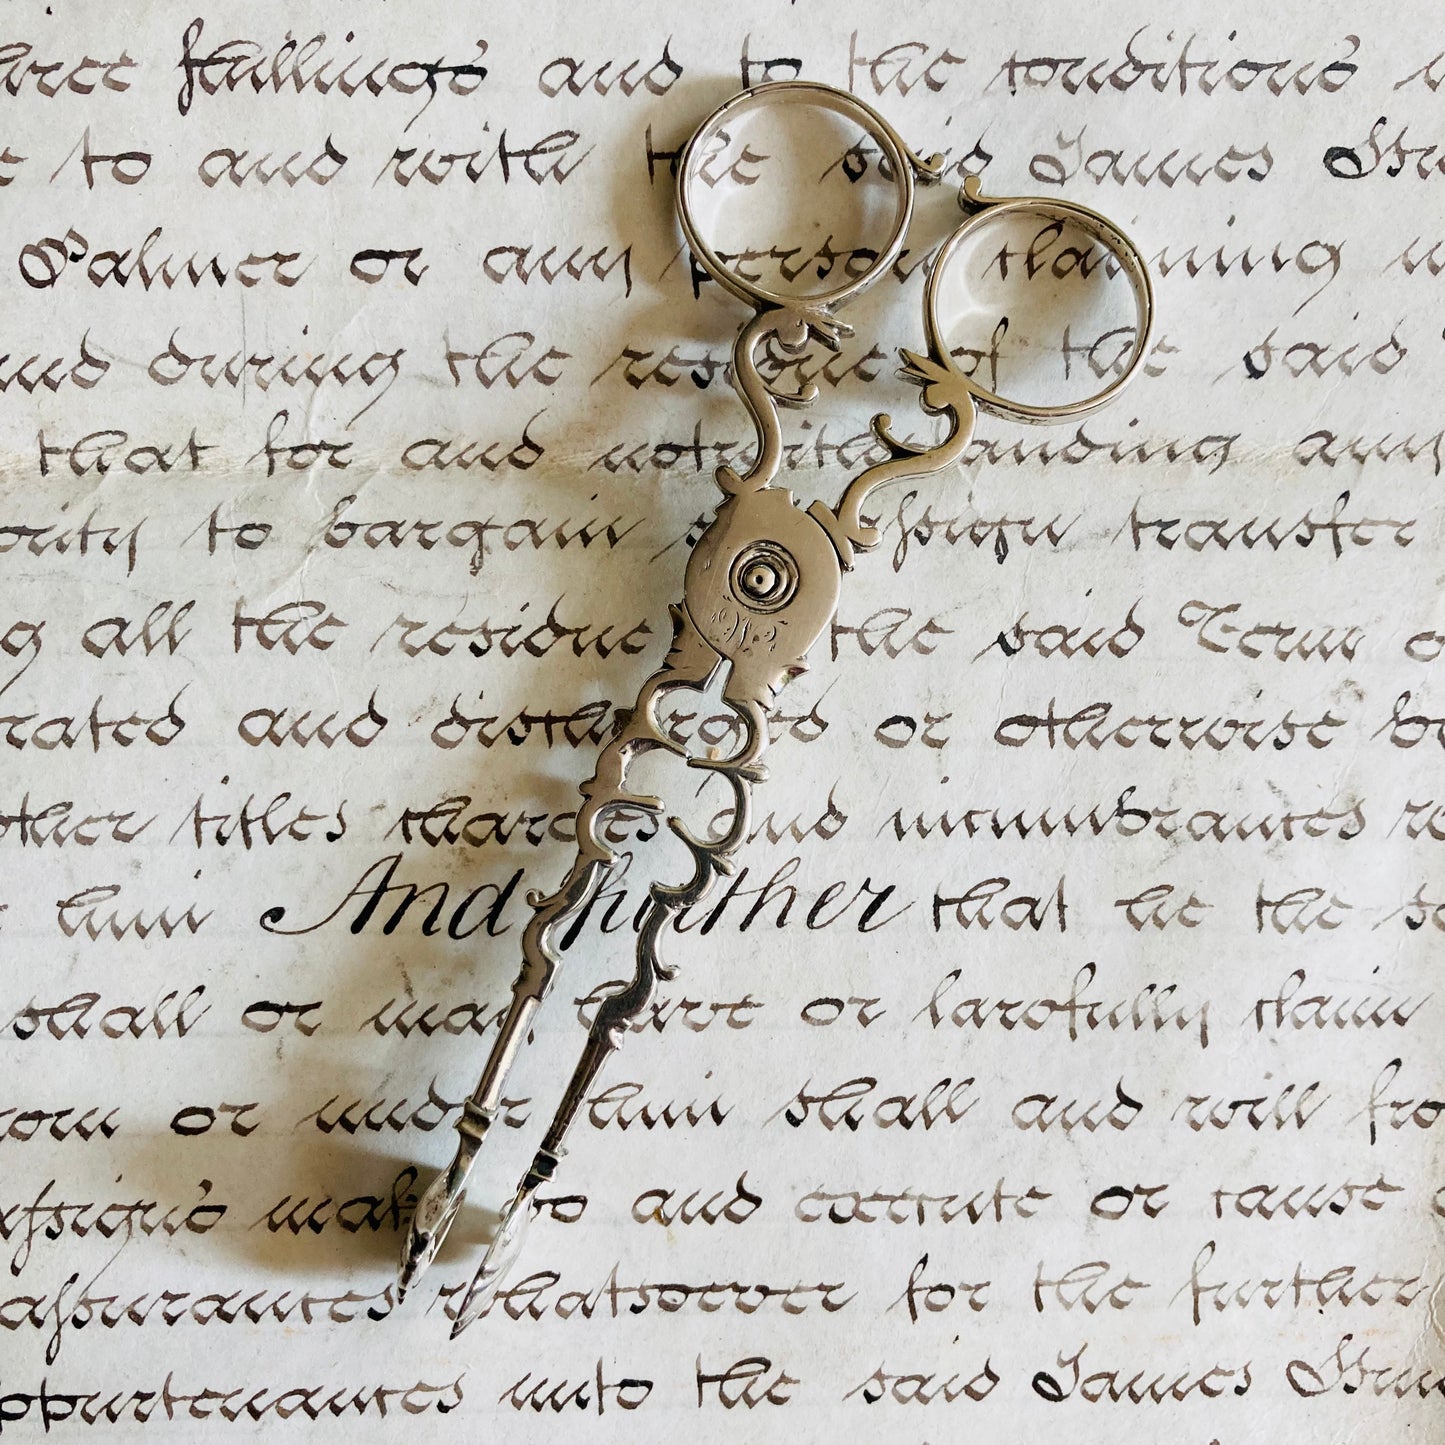 three shillings and to the conditions
to and with the said James
Palmer or any person claiming
and during the residue of the said
that for and notwithstanding any
to bargain assign transfer
all the residue the said Term
and discharged or otherwise
other titles charges and incumbrances
him And further that he the
shall or may have or lawfully claim
from or under him shall and will
assigns make do and execute or cause
assurances whatsoever for the further
appurtenances unto the said James